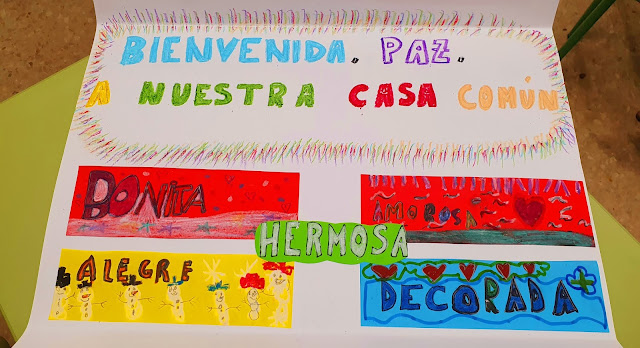 BIENVENIDA, PAZ,
A NUESTRA CASA COMÚN
BONITA
AMOROSA
HERMOSA
ALEGRE
DECORADA